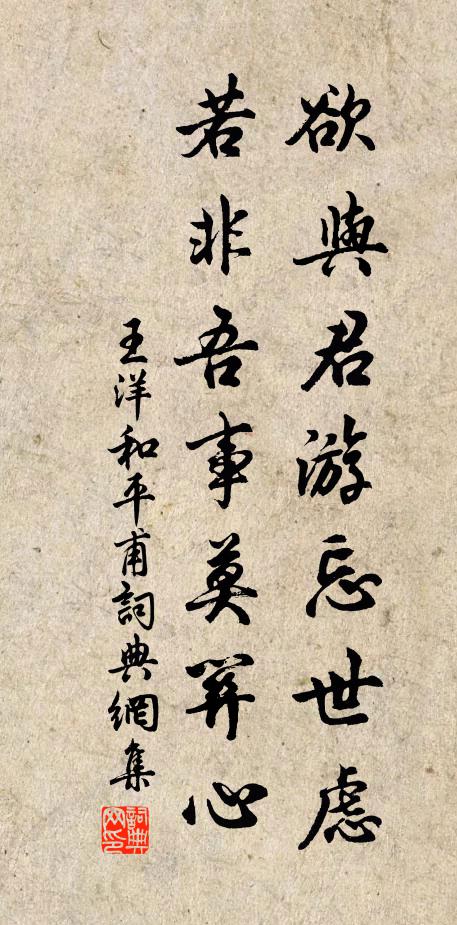 欲與君游忘世慮
若非吾事莫關心
王洋和平甫詞典網集
詞典网印